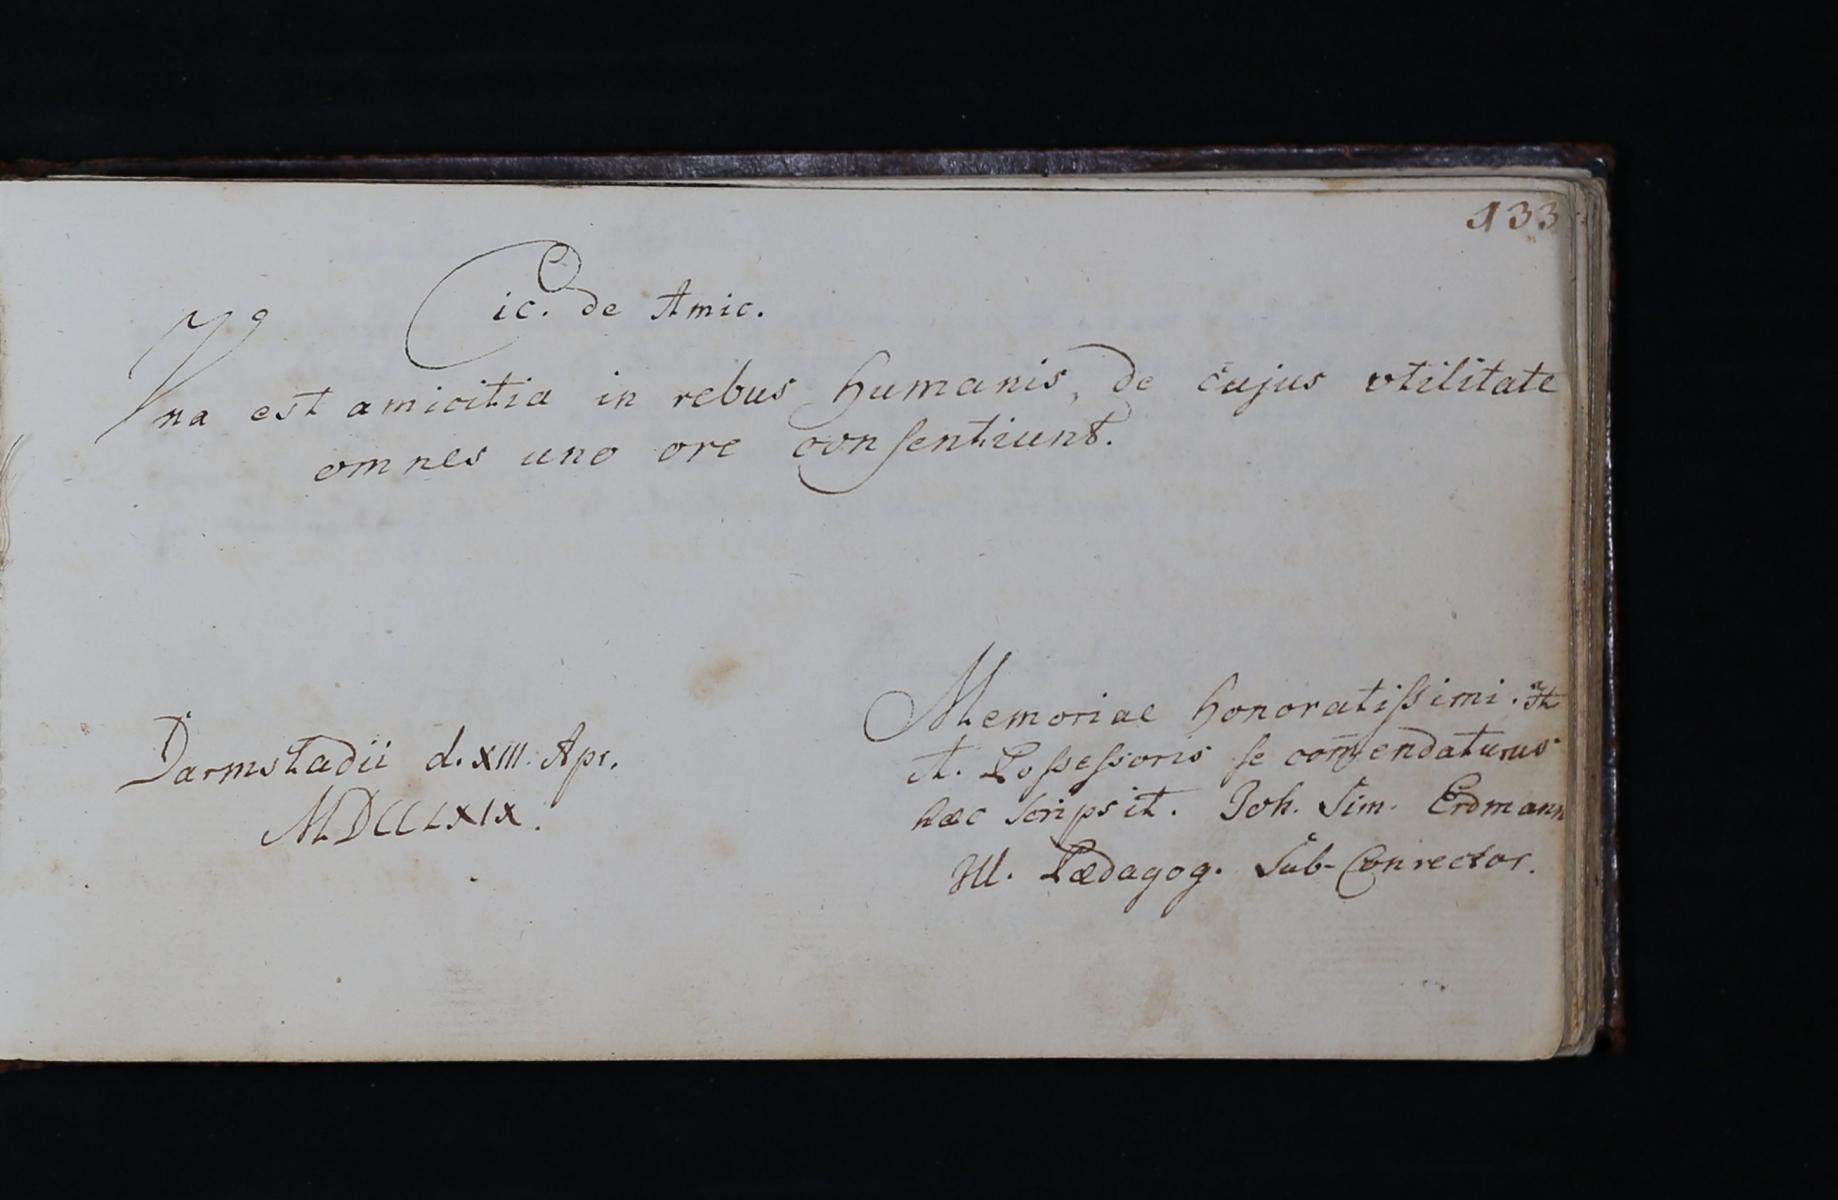 133
Cic. de Amic.
Vna est amicitia in rebus humanis, de cujus vtilitate
omnes uno ore consentiunt.
Memoriae honoratissimi.
A. Possessoris se com̄endaturus
haec scripsit. Joh. Sim. Erdmann
Ill. Pædagog. Sub-Conrector.
Darmstadii d. XIII. Apr.
MDCCLXIX.